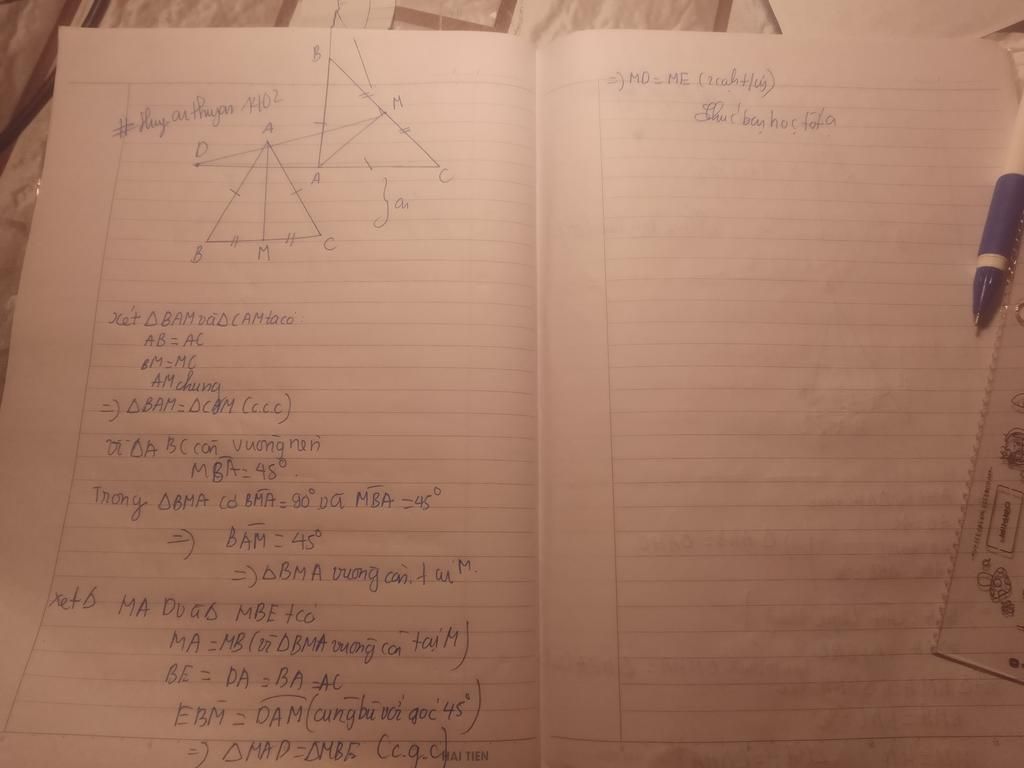 #thuyanthuyan1402
B
M
A
D
A
C
a,
B
M
C
Xét ΔBAM và ΔCAM ta có:
AB = AC
BM = MC
AM chung
=) ΔBAM = ΔCAM (c.c.c)
Vì ΔABC cân vuông nên
MBA = 45°.
Trong ΔBMA có BMA = 90° và MBA = 45°
=) BAM = 45°
=) ΔBMA vuông cân tại M.
Xét Δ MAD và Δ MBE t có
MA = MB (vì ΔBMA vuông cân tại M)
BE = DA = BA = AC
EBM = DAM (cùng bù với góc 45°)
=) ΔMAD = ΔMBE (c.g.c)
HAI TIEN
=) MD = ME (2 cạnh t/ứ)
Chúc bạn học tốt ạ